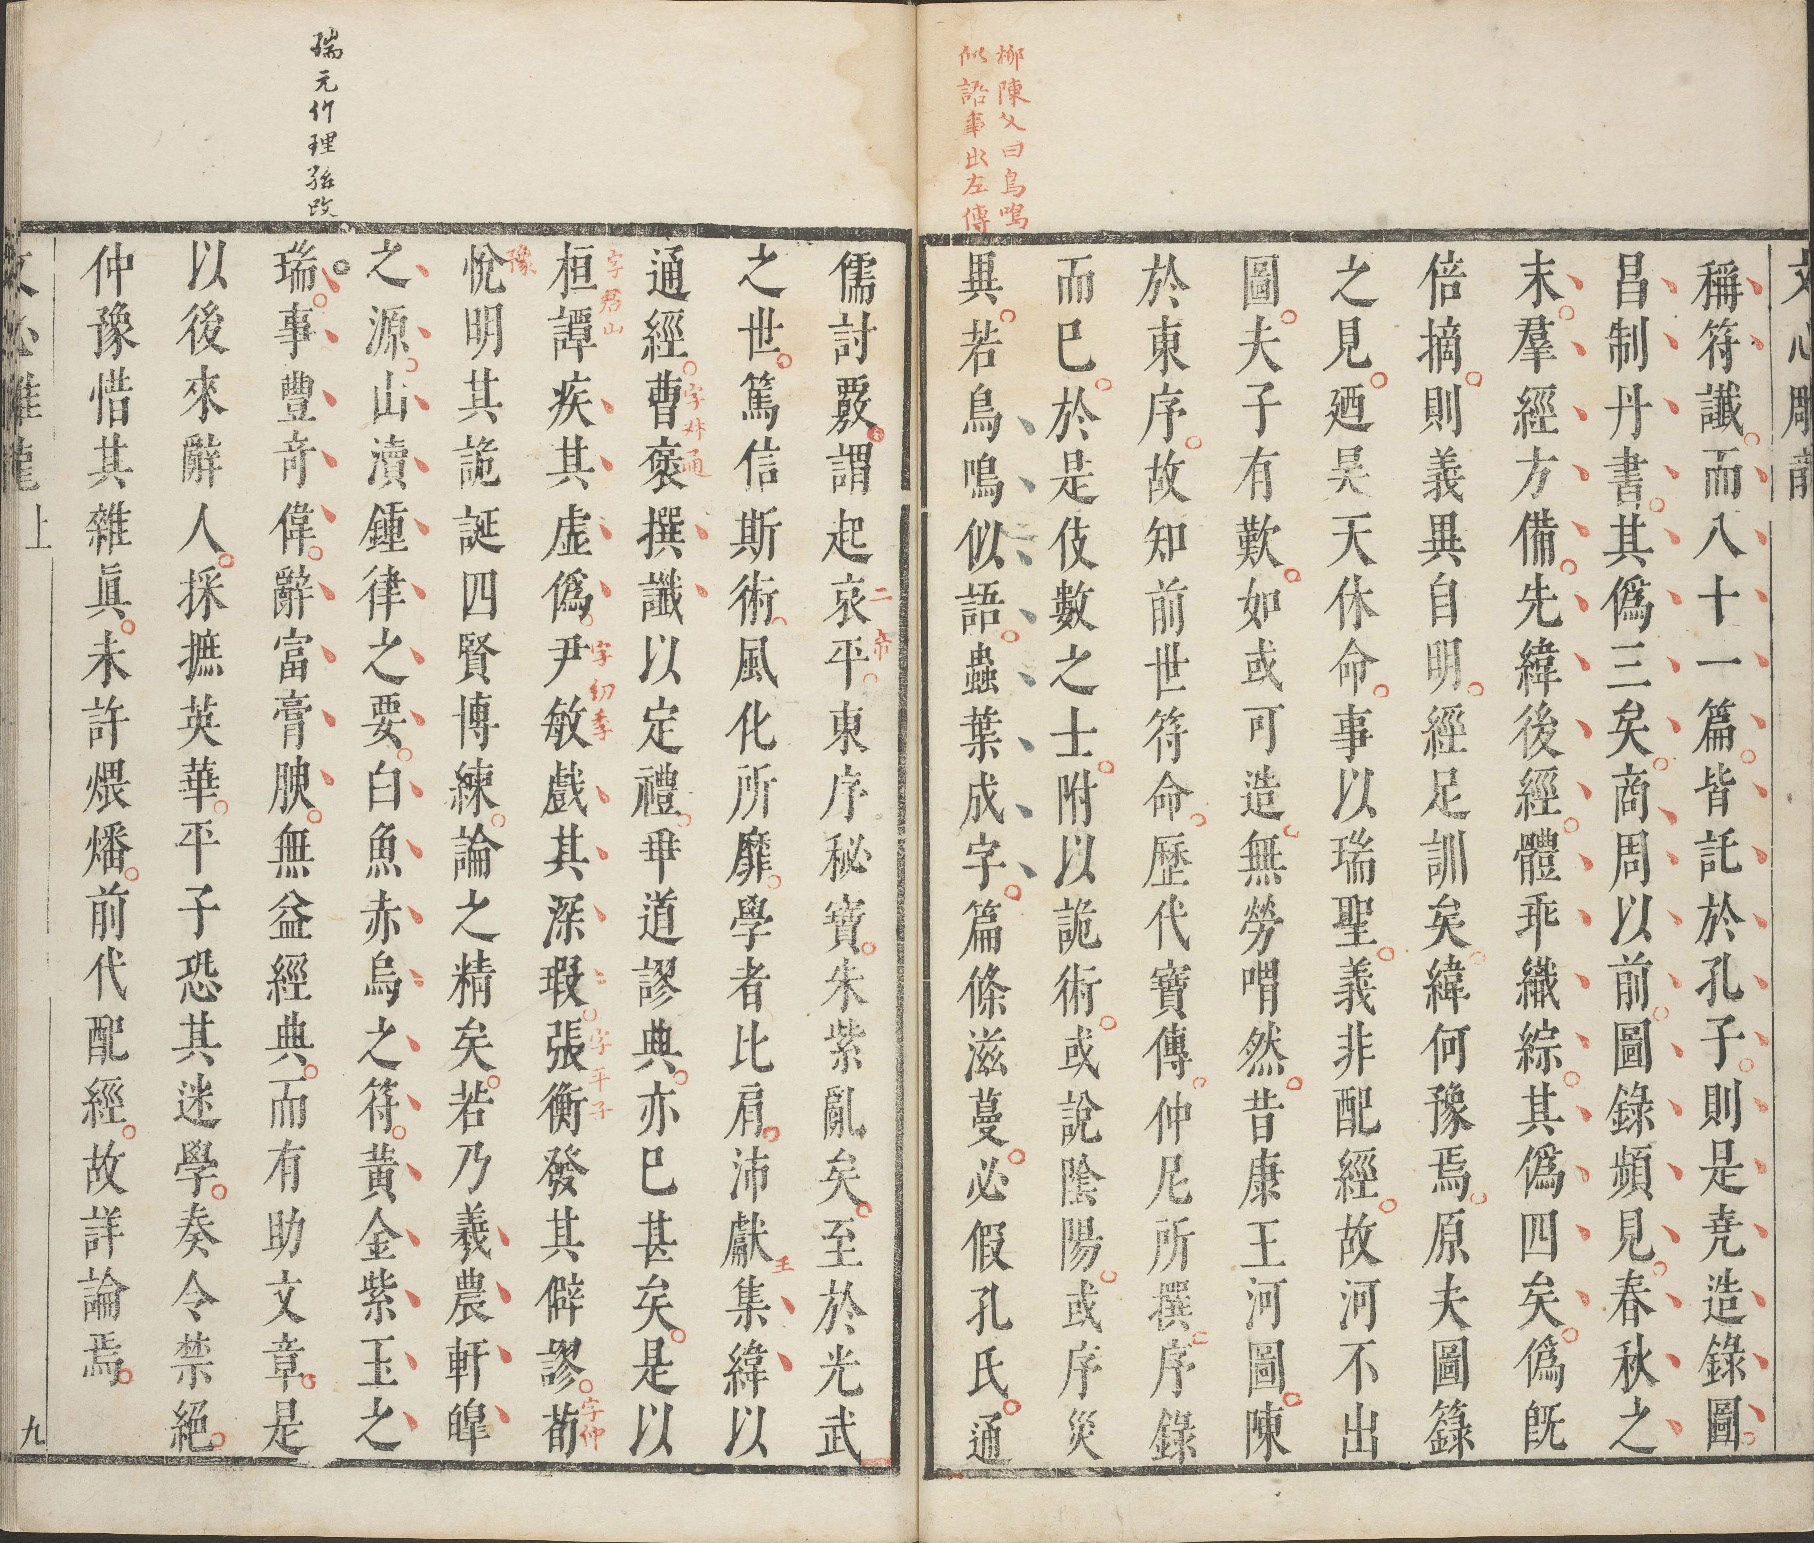 文心雕龍
柳陳父曰鳥鳴
似語事出左傳
稱符讖而八十一篇皆託於孔子則是堯造錄圖
昌制丹書其僞三矣商周以前圖錄頻見春秋之
末羣經方備先緯後經體乖織綜其僞四矣僞旣
倍摘則義異自明經足訓矣緯何豫焉原夫圖籙
之見廼昊天休命事以瑞聖義非配經故河不出
圖夫子有歎如或可造無勞喟然昔康王河圖陳
於東序故知前世符命歷代寶傳仲尼所撰序錄
而巳於是伎數之士附以詭術或說陰陽或序災
異若鳥鳴似語蟲葉成字篇條滋蔓必假孔氏通
儒討覈謂起哀平東序秘寶朱紫亂矣至於光武
二帝
之世篤信斯術風化所靡學者比肩沛獻集緯以
王
通經曹褒撰讖以定禮乖道謬典亦巳甚矣是以
字叔通
桓譚疾其虛僞尹敏戲其深瑕張衡發其僻謬荀
字君山
字幼季
字平子
字仲
豫
悅明其詭誕四賢博練論之精矣若乃羲農軒皞
之源山瀆鍾律之要白魚赤烏之符黃金紫玉之
瑞事豐奇偉辭富膏腴無益經典而有助文章是
瑞元作理孫改
以後來辭人採摭英華平子恐其迷學奏令禁絕
仲豫惜其雜眞未許煨燔前代配經故詳論焉
文心雕龍 上
九